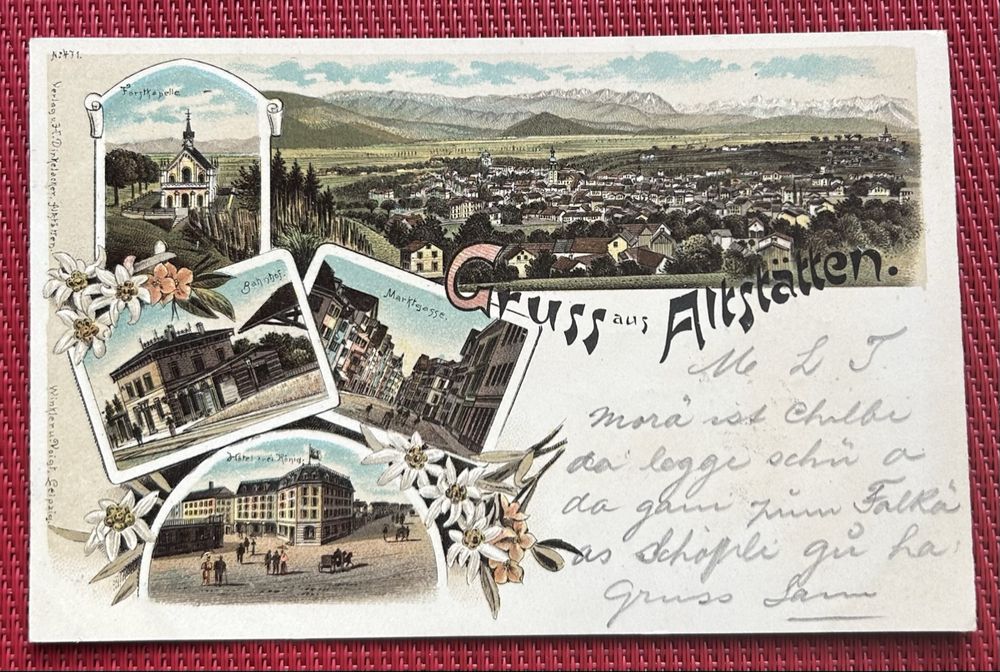 No 471.
Forstkapelle
Verlag v. H. Dinkelacker, Altstätten.
Bahnhof.
Marktgasse.
Gruss aus Altstätten.
Winkler u. Voigt, Leipzig.
Hôtel drei König.
M L T
morä ist Chilbi
da legge schü a
da gam zum Falkä
as Schöpli gü ha
Gruss Sam